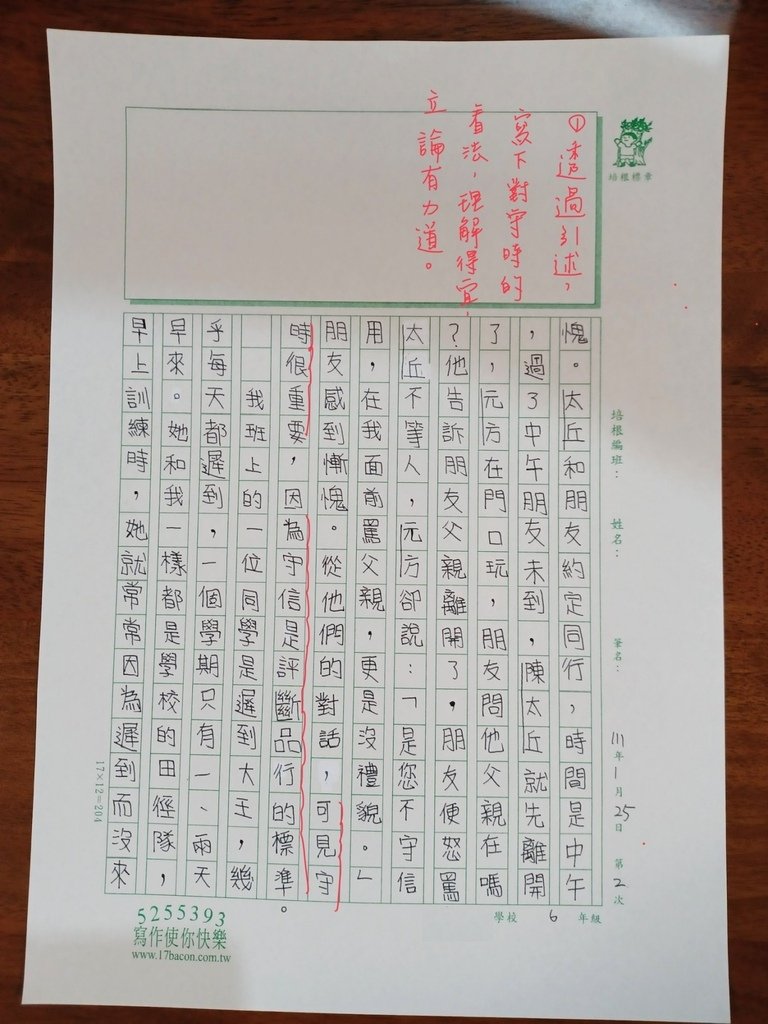 ①透過引述，
寫下對守時的
看法，理解得宜，
立論有力道。
培根標章
培根編班：
姓名：
筆名：
111年1月25日 第2次
愧。太丘和朋友約定同行，時間是中午
，過了中午朋友未到，陳太丘就先離開
了，元方在門口玩，朋友問他父親在嗎
？他告訴朋友父親離開了，朋友便怒罵
太丘不等人，元方卻說：「是您不守信
用，在我面前罵父親，更是沒禮貌。」
朋友感到慚愧。從他們的對話，可見守
時很重要，因為守信是評斷品行的標準。
我班上的一位同學是遲到大王，幾
乎每天都遲到，一個學期只有一、兩天
早來。她和我一樣都是學校的田徑隊，
早上訓練時，她就常常因為遲到而沒來
17×12=204
學校 6 年級
5255393
寫作使你快樂
www.17bacon.com.tw